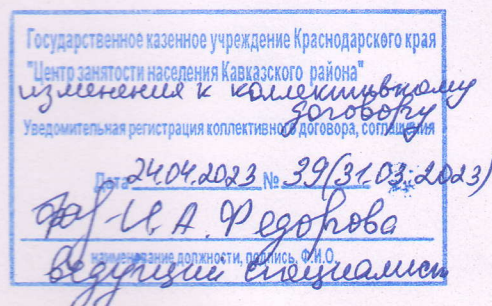 Государственное казенное учреждение Краснодарского края
"Центр занятости населения Кавказского района"
изменения к коллективному
договору
Уведомительная регистрация коллективного договора, соглашения
Дата 24.04.2023 № 39(31.03.2023)
И.А. Федорова
наименование должности, подпись, Ф.И.О.
ведущий специалист